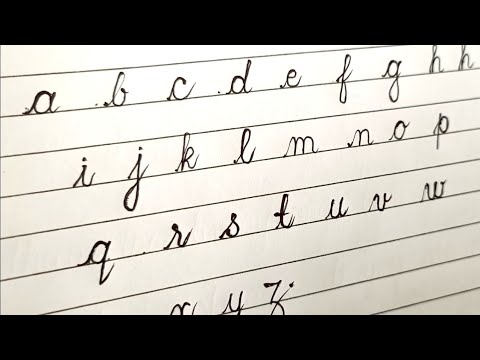 a b c d e f g h h
i j k l m n o p
q r s t u v w
x y z